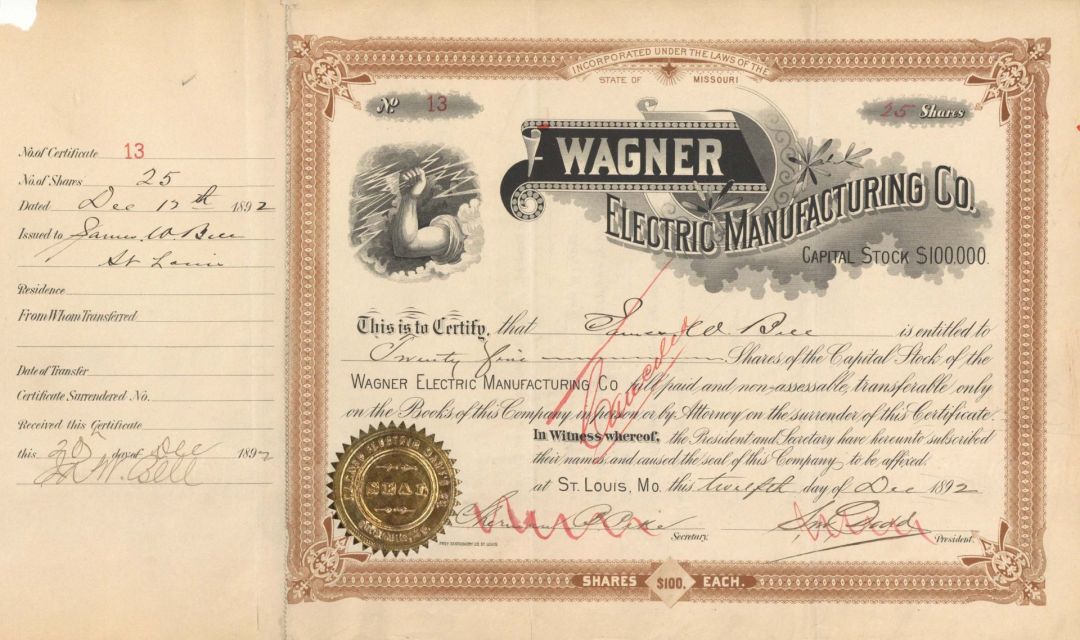 No. of Certificate 13
No. of Shares 25
Dated Dec 12th 1892
Issued to James W. Bell
St Louis
Residence
From Whom Transferred
Date of Transfer
Certificate Surrendered No.
Received this Certificate
this 20th day of Dec 1892
J W. Bell
INCORPORATED UNDER THE LAWS OF THE
STATE OF MISSOURI
No 13
25 Shares
WAGNER
ELECTRIC MANUFACTURING CO.
CAPITAL STOCK $100,000.
This is to Certify, that James W. Bell is entitled to
Twenty five Shares of the Capital Stock of the
WAGNER ELECTRIC MANUFACTURING CO full paid and non-assessable, transferable only
on the Books of this Company in person or by Attorney on the surrender of this Certificate
Cancelled
In Witness whereof, the President and Secretary have hereunto subscribed
their names and caused the seal of this Company to be affixed.
at ST. LOUIS, MO. this twelfth day of Dec 1892
SEAL
Secretary.
President.
SHARES $100. EACH.